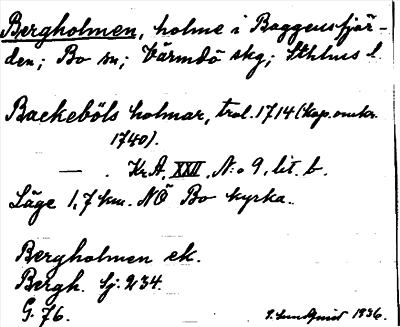 Bergholmen, holme i Baggensfjär-
den; Bo sn; Värmdö skg; Sthlms l.
Backeböls holmar, trol. 1714 (kop. omkr.
1740).
— . Kr.A. XXII, N:o 9, lit. b.
Läge 1,7 km. NÖ Bo kyrka.
Bergholmen ek.
Bergh. Sj. 234.
G. 76.
S. Lundquist 1936.